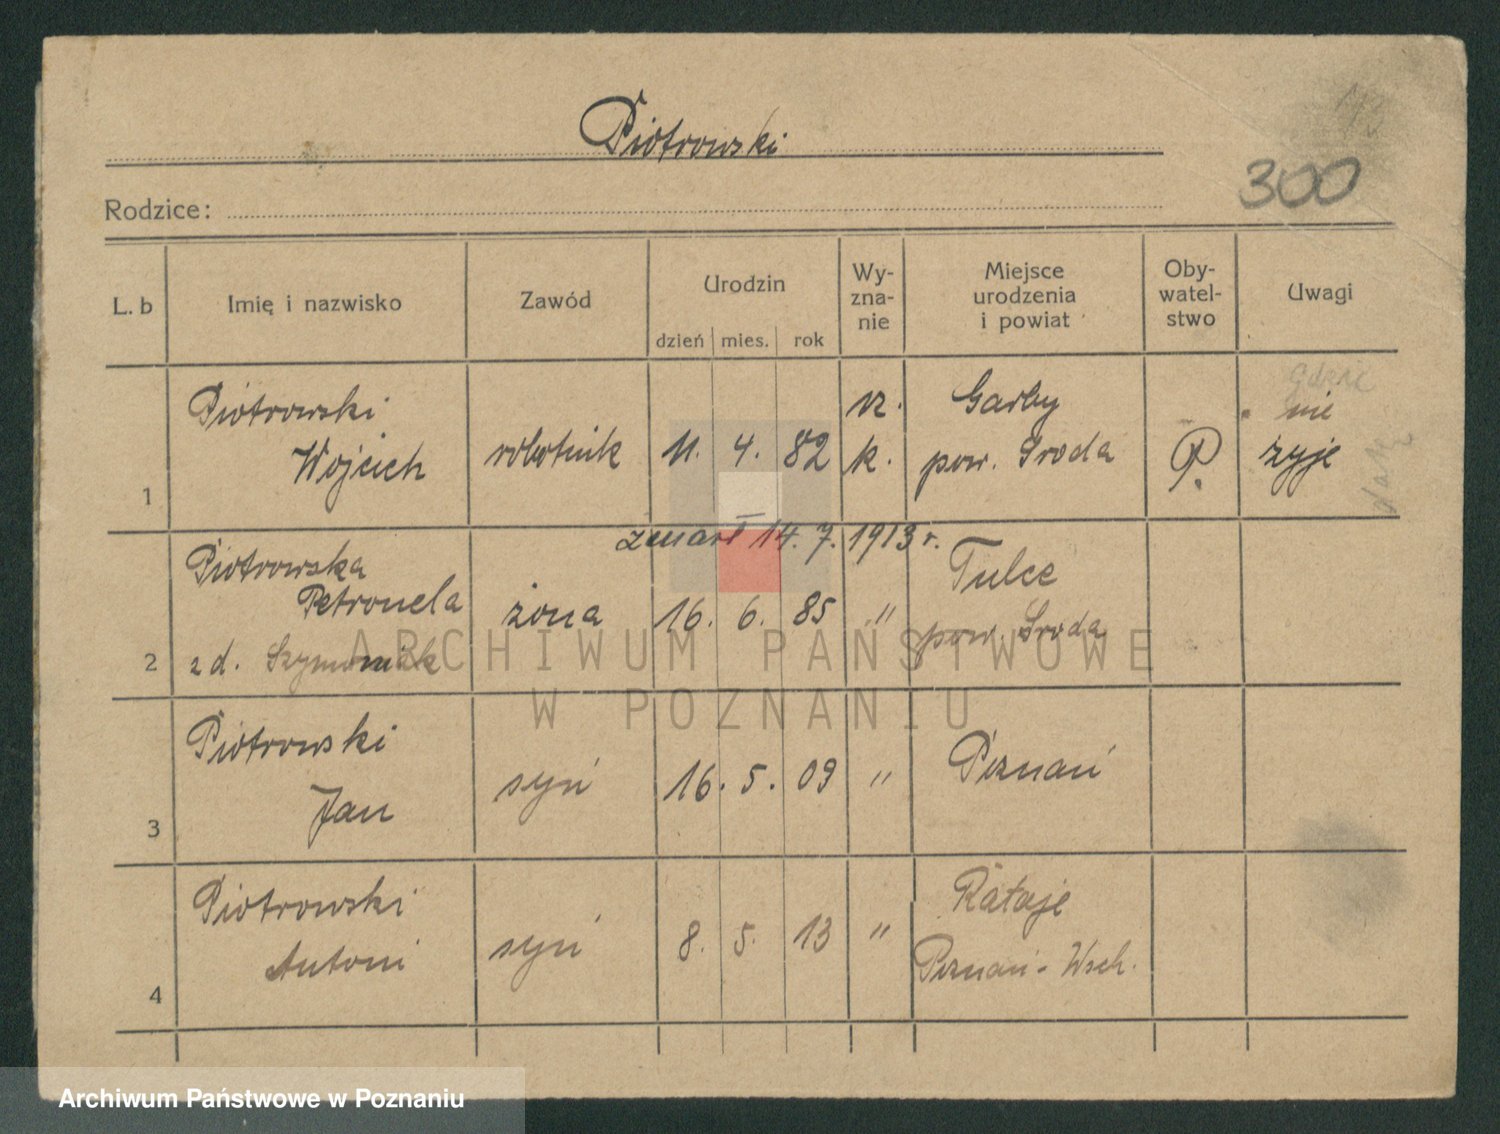 Piotrowski
300
Rodzice:
L. b
Imię i nazwisko
Zawód
Urodzin
dzień mies. rok
Wy-
zna-
nie
Miejsce
urodzenia
i powiat
Oby-
watel-
stwo
Uwagi
1
Piotrowski
Wojciech
robotnik
11. 4. 82
rz.
k.
Garby
pow. Środa
P.
nie
żyje
zmarł 14. 7. 1913 r.
2
Piotrowska
Petronela
z d. Szymoniak
żona
16. 6. 85
"
Tulce
pow. Środa
3
Piotrowski
Jan
syn
16. 5. 09
"
Poznań
4
Piotrowski
Antoni
syn
8. 5. 13
"
Rataje
Poznań - Wsch.
ARCHIWUM PAŃSTWOWE
W POZNANIU
Archiwum Państwowe w Poznaniu